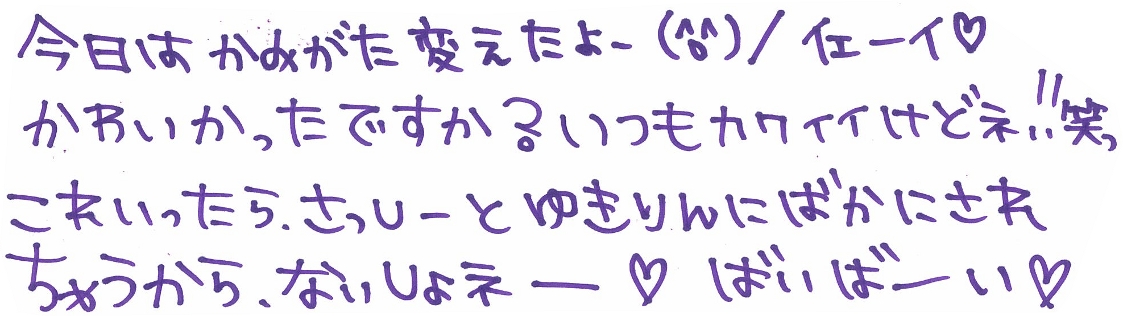 今日はかみがた変えたよー (^o^)/ イェーイ♡
かわいかったですか?いつもカワイイけどネ!!笑っ
これいったら、さっしーとゆきりんにばかにされ
ちゃうから、ないしょネー♡ ばいばーい♡